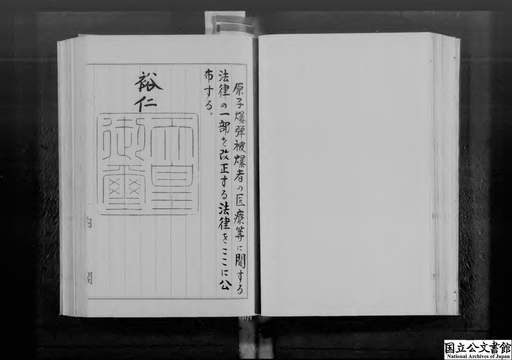 原子爆弾被爆者の医療等に関する
法律の一部を改正する法律をここに公
布する。
裕仁
天皇
御璽
内閣
国立公文書館
National Archives of Japan